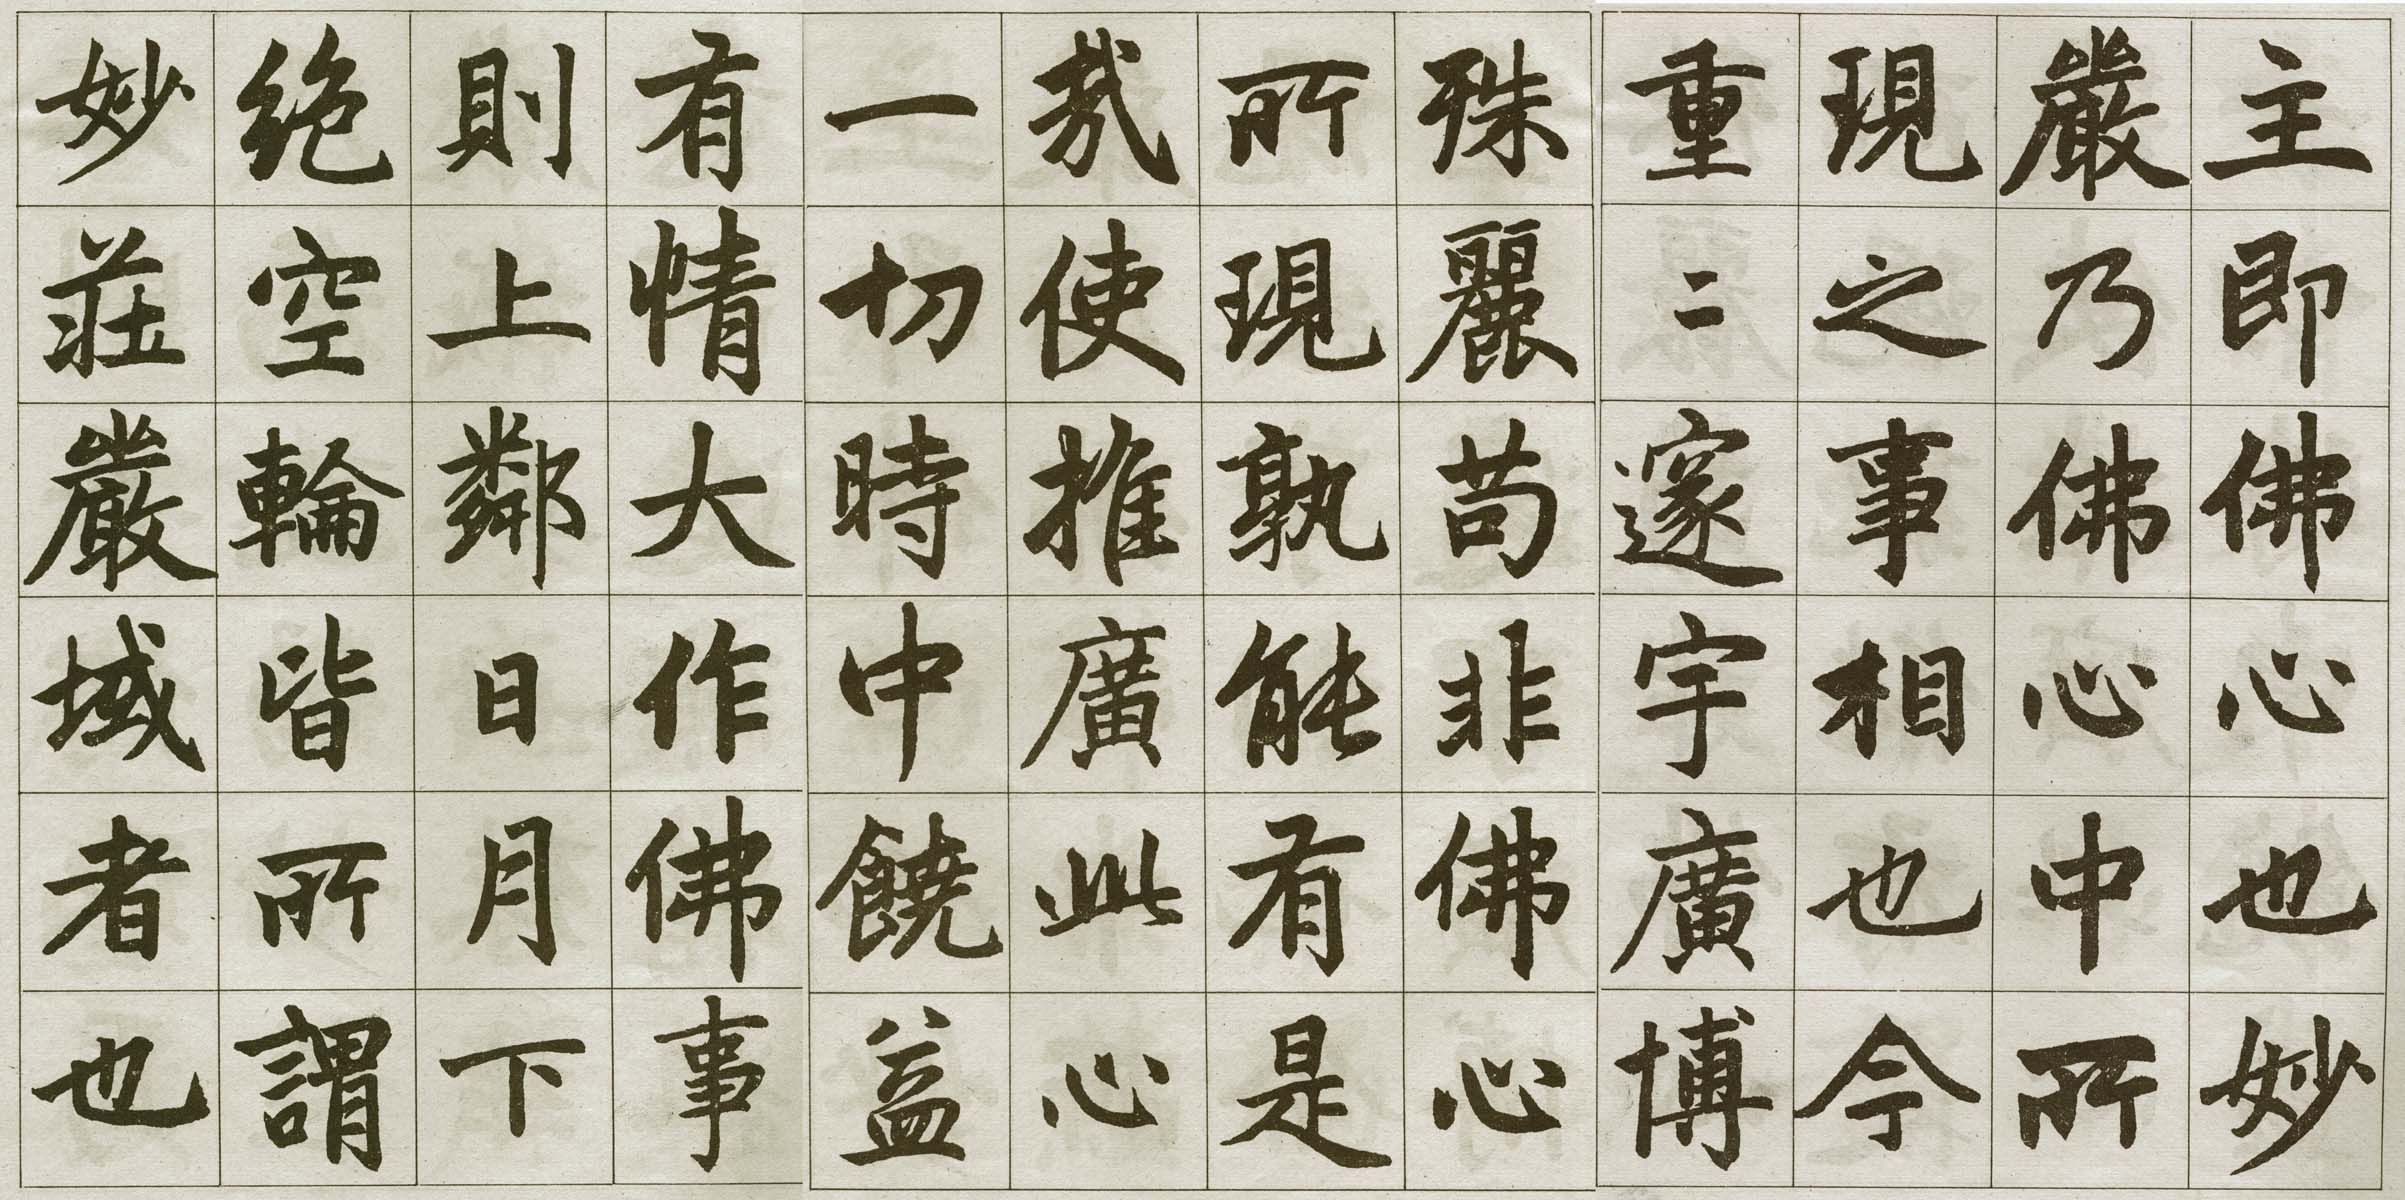 主即佛心也妙
嚴乃佛心中所
現之事相也今
重二邃宇廣博
殊麗苟非佛心
所現孰能有是
哉使推廣此心
一切時中饒益
有情大作佛事
則上鄰日月下
絶空輪皆所謂
妙莊嚴域者也